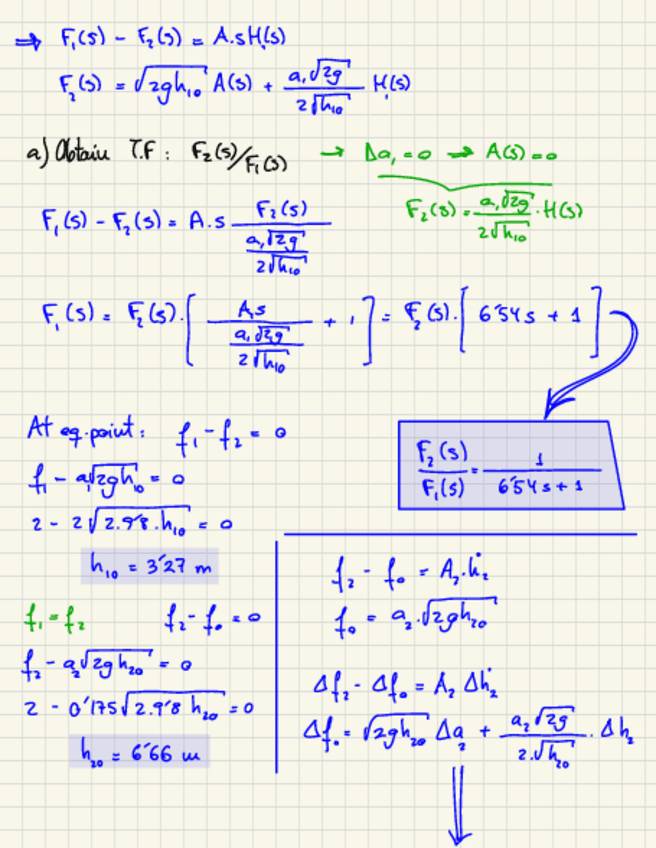 ⇒ F₁(s) - F₂(s) = A.sH₁(s)
F₂(s) = √2gh₁₀ A(s) + a₁√2g / 2√h₁₀ H₁(s)
a) Obtain T.F: F₂(s)/F₁(s) → Δa₁ = 0 → A(s) = 0
F₂(s) = a₁√2g / 2√h₁₀ · H(s)
F₁(s) - F₂(s) = A.s F₂(s) / (a₁√2g / 2√h₁₀)
F₁(s) = F₂(s).[A₁s / (a₁√2g / 2√h₁₀) + 1] = F₂(s).[6'54s + 1]
F₂(s)/F₁(s) = 1 / 6'54s + 1
At eq.point: f₁ - f₂ = 0
f₁ - a₁√2gh₁₀ = 0
2 - 2√2.9'8.h₁₀ = 0
h₁₀ = 3'27 m
f₁ = f₂ f₂ - f₀ = 0
f₂ - a₂√2gh₂₀ = 0
2 - 0'175√2.9'8 h₂₀ = 0
h₂₀ = 6'66 m
f₂ - f₀ = A₂.ḣ₂
f₀ = a₂.√2gh₂₀
Δf₂ - Δf₀ = A₂ Δḣ₂
Δf₀ = √2gh₂₀ Δa₂ + a₂√2g / 2.√h₂₀ . Δh₂
⇓